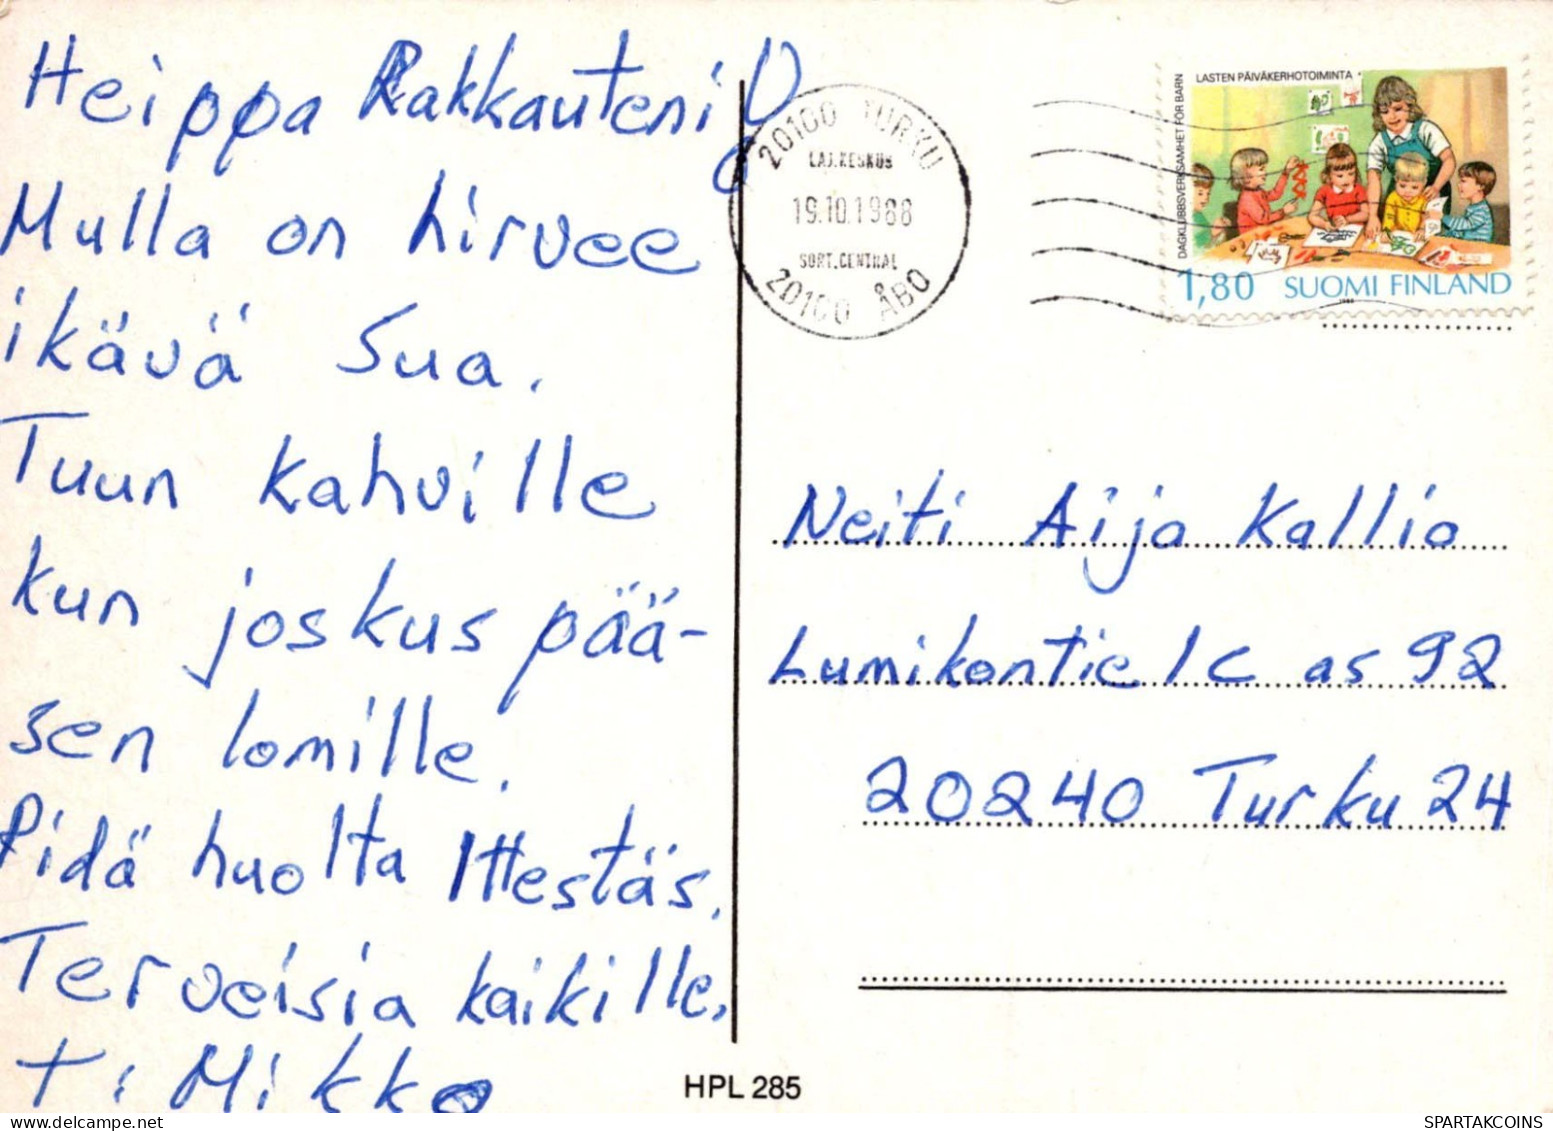 Heippa Rakkauteni!
Mulla on hirvee
ikävä Sua.
Tuun kahville
kun joskus pää-
sen lomille.
Pidä huolta Ittestäs.
Terveisia kaikille.
t: Mikko
20100 TURKU
LAJ.KESKUS
19.10.1988
SORT.CENTRAL
20100 ÅBO
LASTEN PÄIVÄKERHOTOIMINTA
DAGKLUBBSVERKSAMHET FÖR BARN
1,80 SUOMI FINLAND
1988
Neiti Aija Kallio
Lumikontie 1 C as 92
20240 Turku 24
HPL 285
SPARTAKCOINS